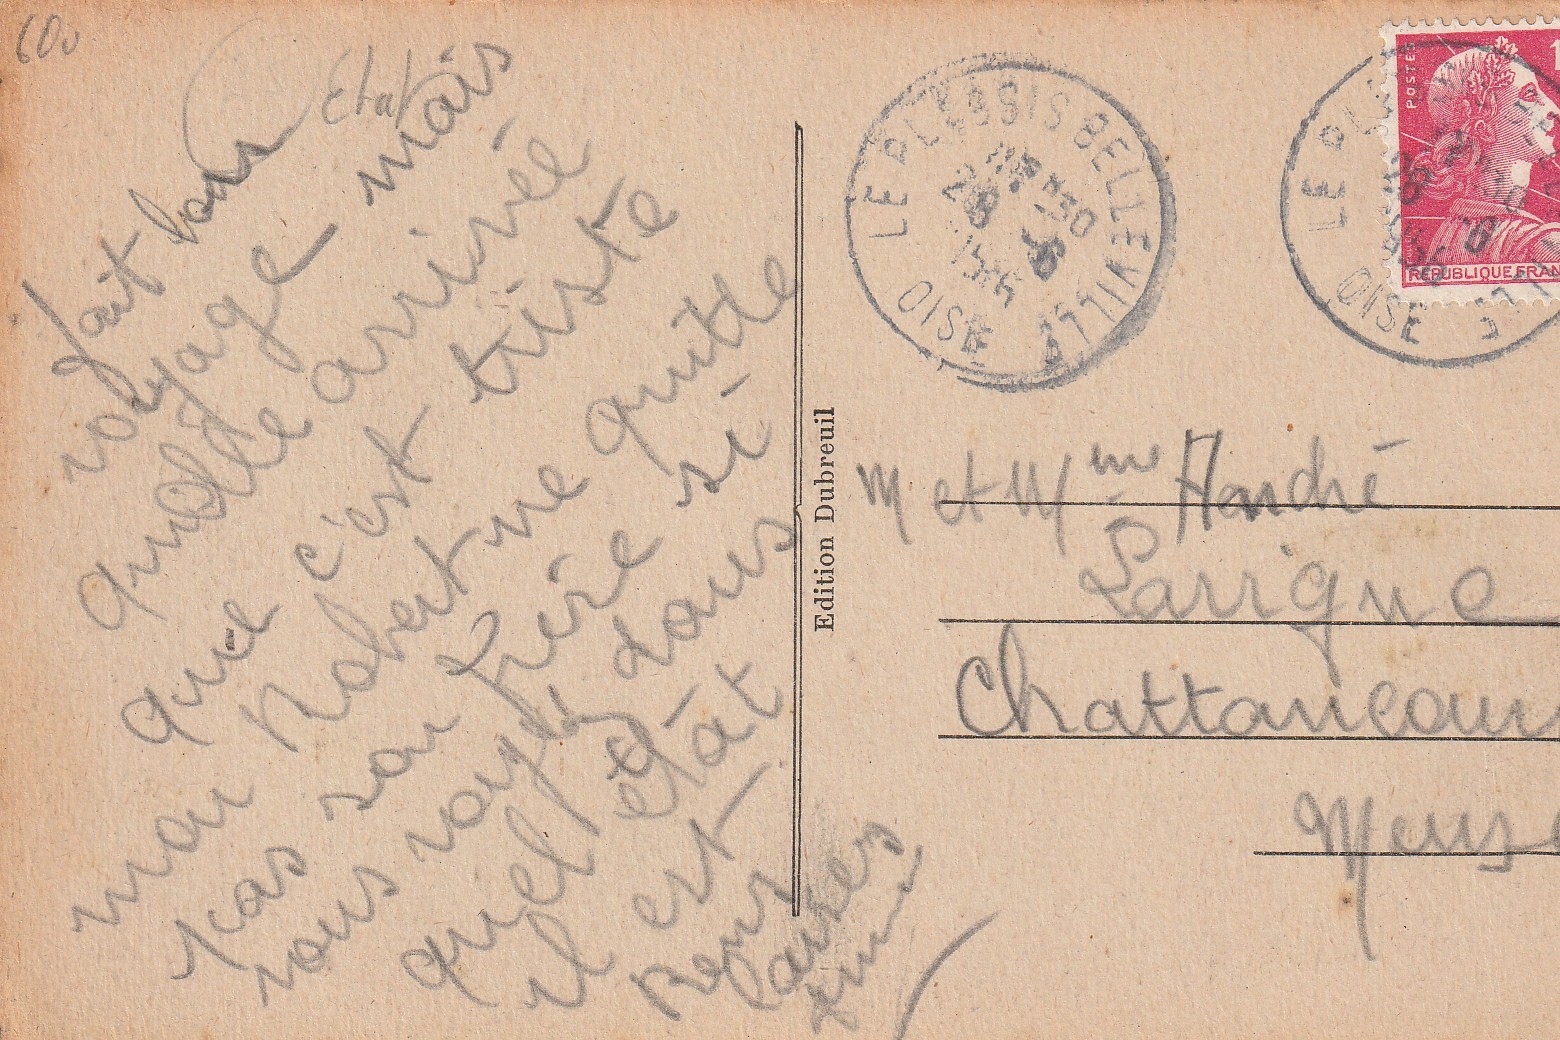 60
fait bon
voyage mais
quelle arrivée
que c'est triste
mon Robert ne quitte
pas son frère si
vous voyé dans
quel état
il est
LE PLESSIS BELLEVILLE
28 -6
OISE
POSTES
REPUBLIQUE FRAN
LE PL
OISE
Edition Dubreuil
M et Mme André
Larrigue
Chattancour
Meuse